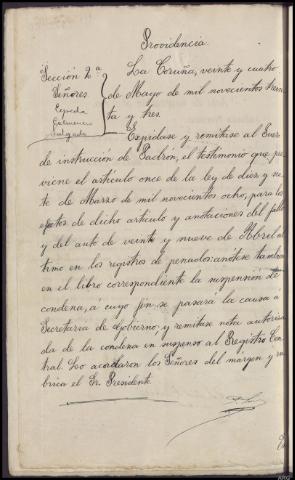 Providencia
Sección 2ª
Señores
Cepeda
Salgado
La Coruña, veinte y cuatro
de Mayo de mil novecientos trein
ta y tres.
Expídase y remítase al Juez
de instrucción de Padrón, el testimonio que pre
viene el artículo once de la ley de diez y sie
te de Marzo de mil novecientos ocho, para los
efectos de dicho artículo y anotaciones del fallo
y del auto de veinte y nueve de Abril úl
timo en los registros de penados: anótese tambien
en el libro correspondiente la suspensión de
condena, á cuyo fin se pasará la causa a
Secretaria de Gobierno, y remitase nota autoriza
da de la condena en suspenso al Registro Cen
tral. Lo acordaron los Señores del márgen y ru
brica el Sr. Presidente